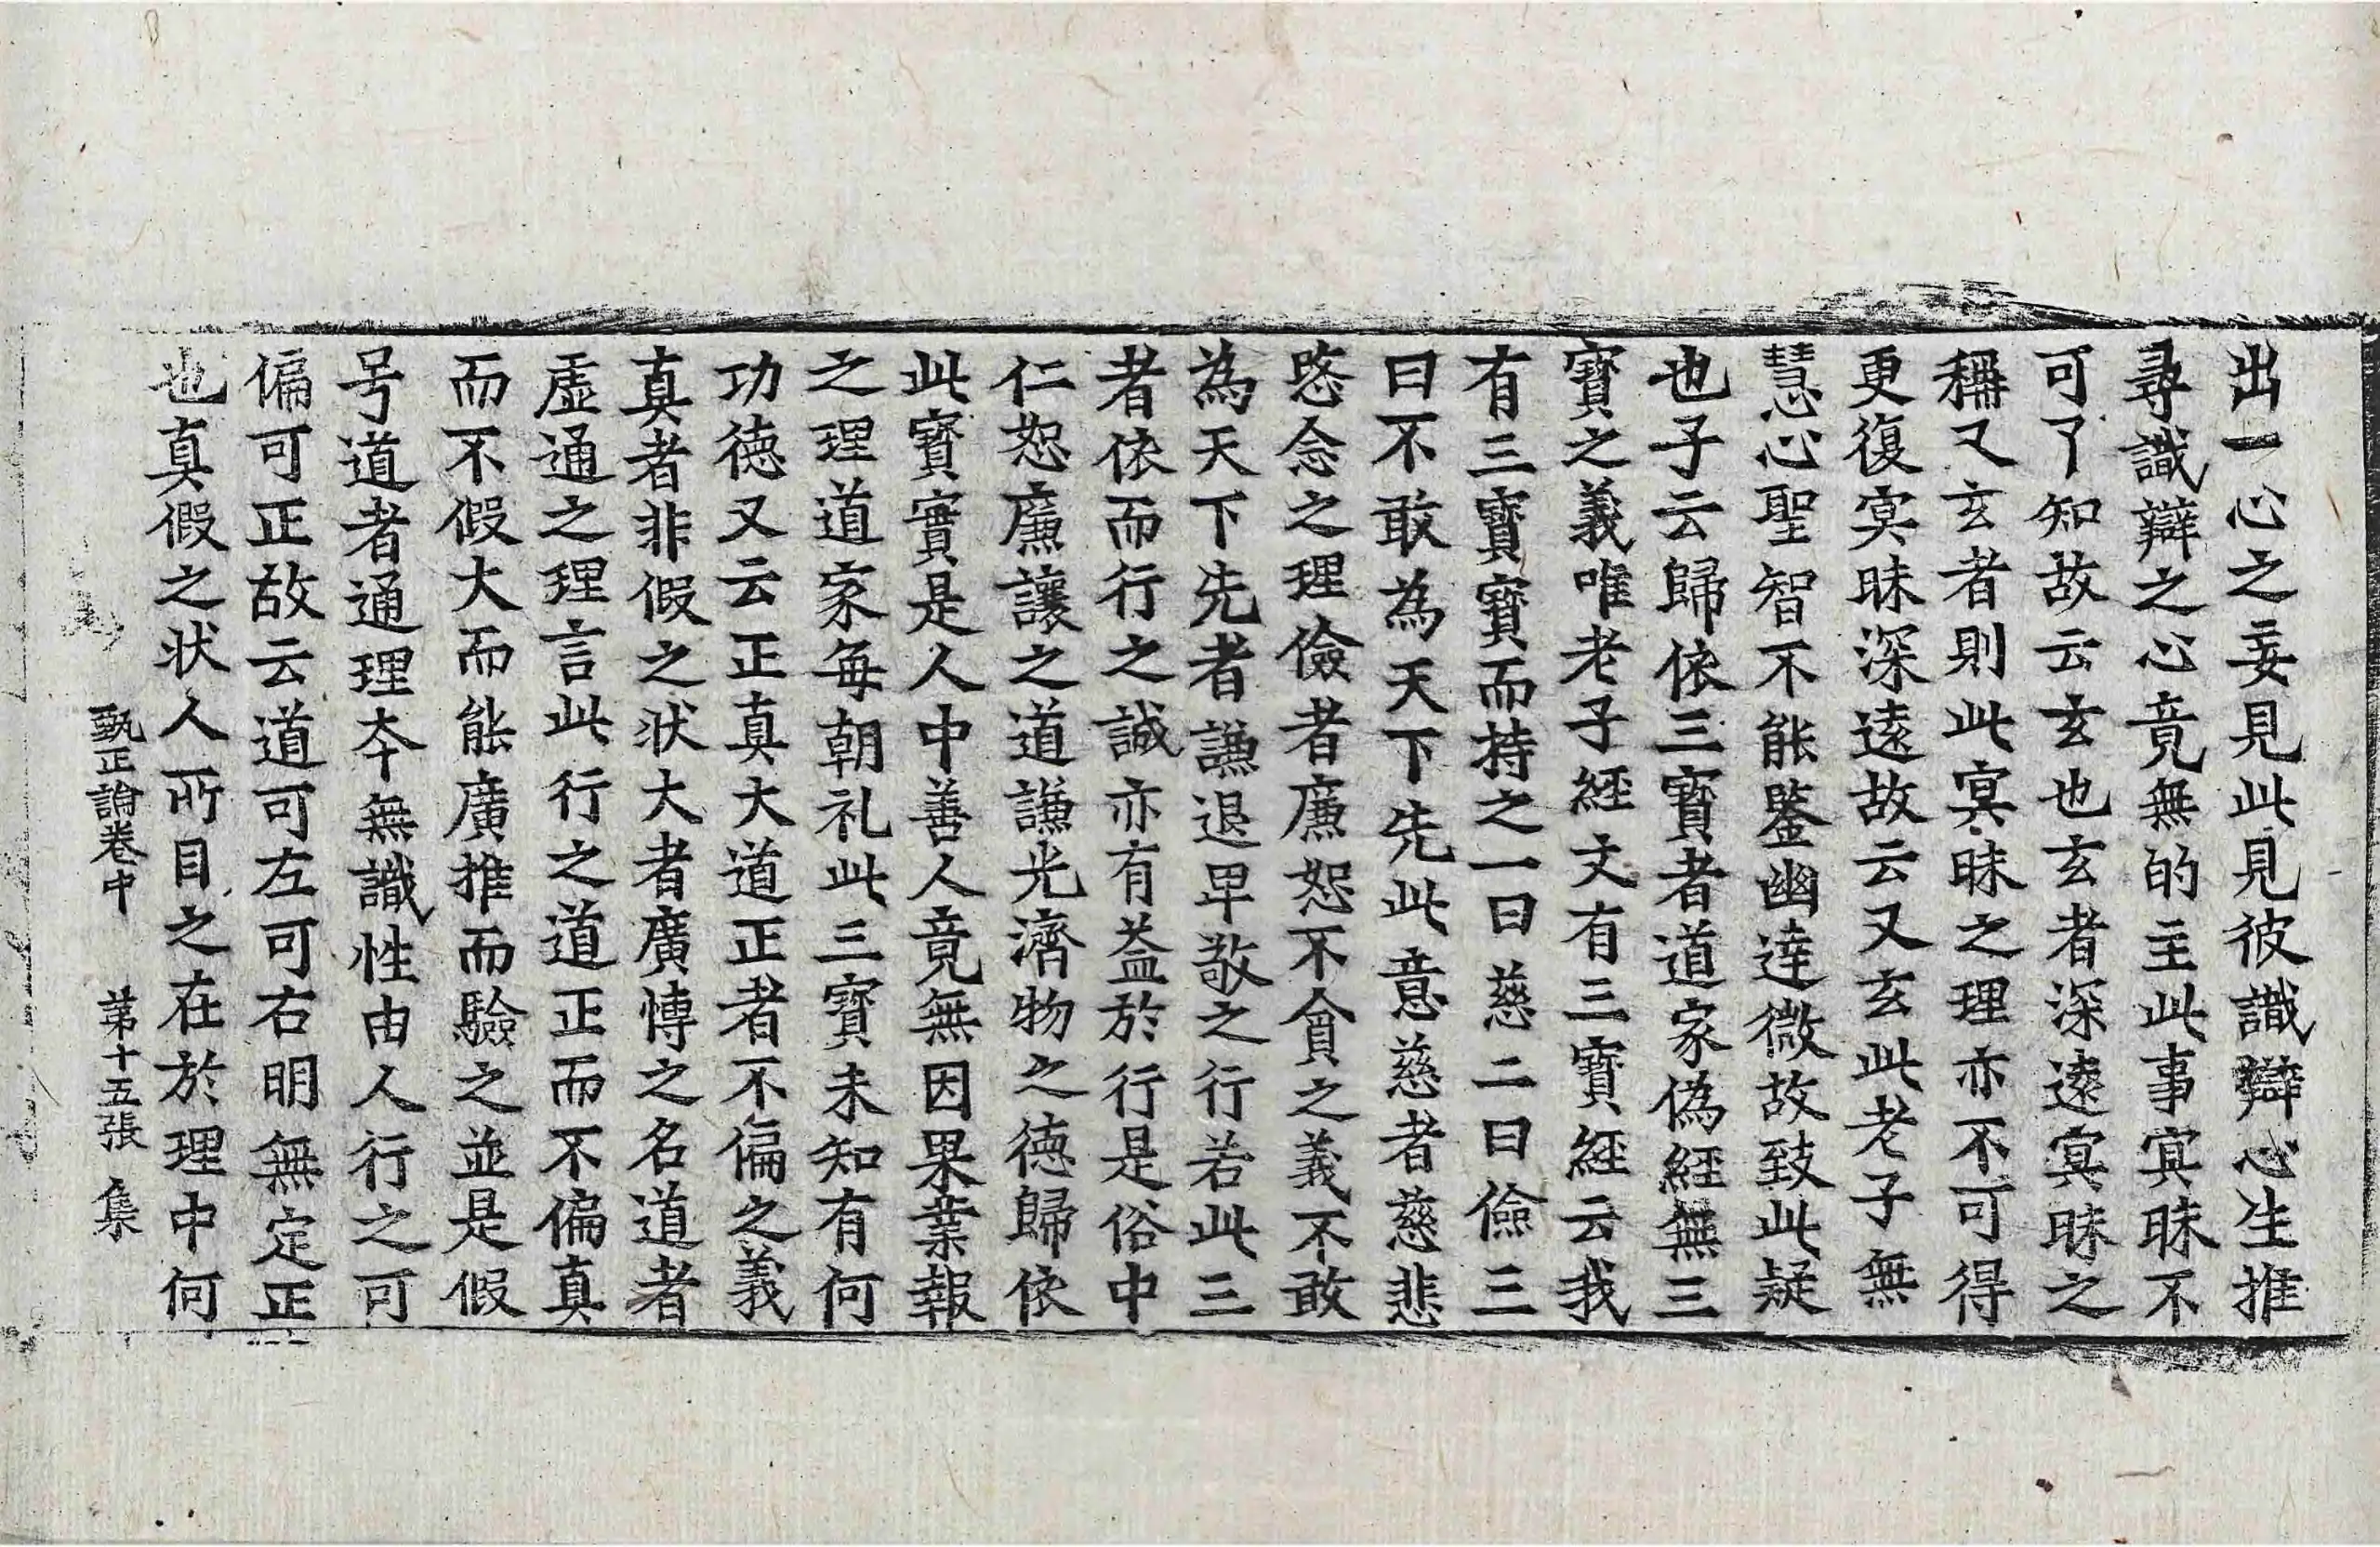 出一心之妄見此見彼識辯心生推
尋識辯之心竟無的主此事冥昧不
可了知故云玄也玄者深遠冥昧之
稱又玄者則此冥昧之理亦不可得
更復冥昧深遠故云又玄此老子無
慧心聖智不能鑒幽達微故致此疑
也子云歸依三寶者道家偽經無三
寶之義唯老子經文有三寶經云我
有三寶寶而持之一曰慈二曰儉三
曰不敢為天下先此意慈者慈悲
愍念之理儉者廉恕不貪之義不敢
為天下先者謙退卑敬之行若此三
者依而行之誠亦有益於行是俗中
仁恕廉讓之道謙光濟物之德歸依
此寶實是人中善人竟無因果業報
之理道家每朝礼此三寶未知有何
功德又云正真大道正者不偏之義
真者非假之状大者廣慱之名道者
虛通之理言此行之道正而不偏真
而不假大而能廣推而驗之並是假
号道者通理夲無識性由人行之可
偏可正故云道可左可右明無定正
也真假之状人所目之在於理中何
甄正論卷中 苐十五張 集